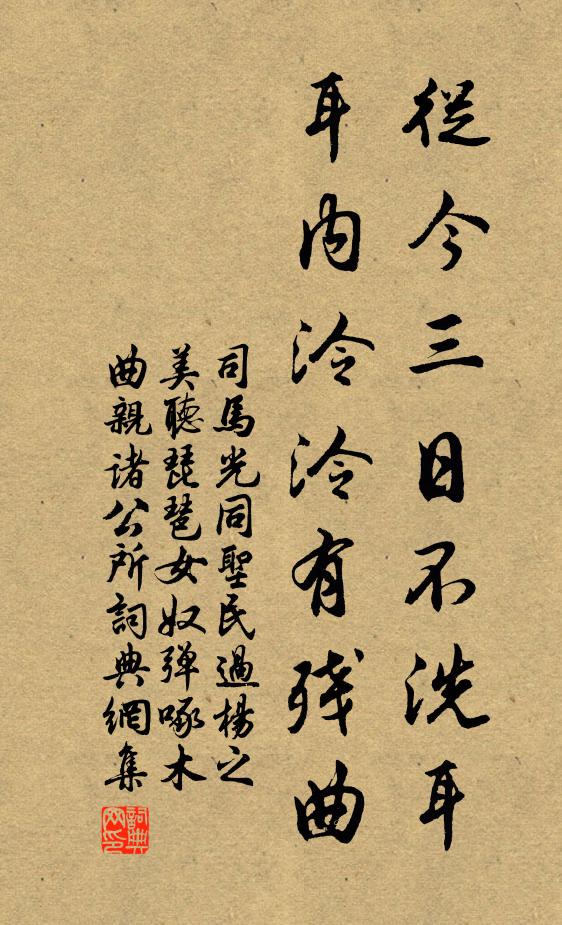 從今三日不洗耳
耳内泠泠有残曲
司馬光同聖民過楊之
美聽琵琶女奴弹啄木
曲親诸公所詞典網集
詞典网印